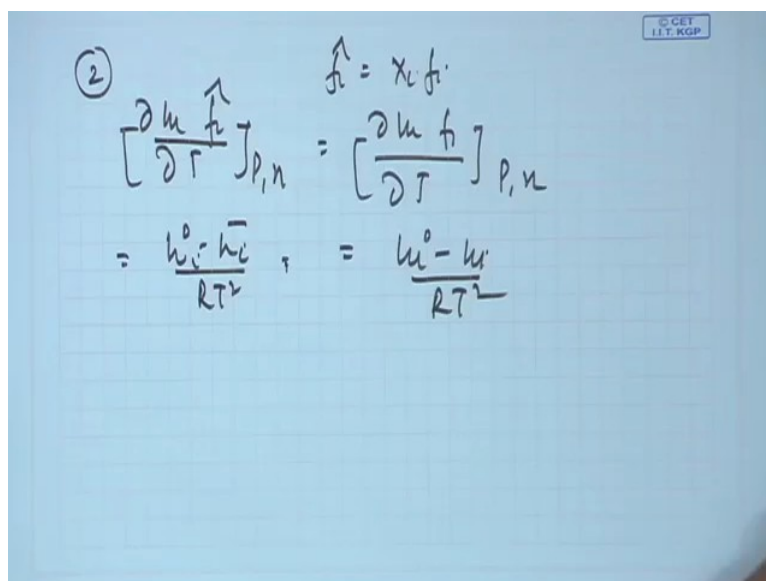 © CET
I.I.T. KGP
② f̂i = xi fi
[∂ ln f̂i / ∂T]P,n = [∂ ln fi / ∂T]P,n
= hi° - h̄i / RT² , = hi° - hi / RT²